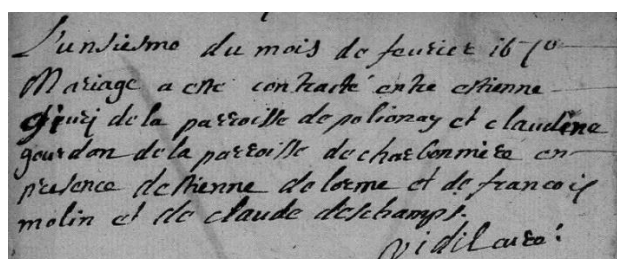 L'unsiesme du mois de feurier 1670
Mariage a este contracté entre estienne
de la parroisse de polionay et claudine
gourdon de la parroisse de charbonniere en
presence destienne de lorme et de francois
molin et de claude deschamps.